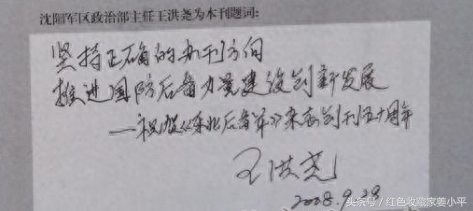 沈阳军区政治部主任王洪尧为本刊题词:
坚持正确的办刊方向
推进国防后备力量建设创新发展
—祝贺《东北后备军》杂志创刊五十周年
王洪尧
2008.9.28
头条号/红色收藏家姜小平